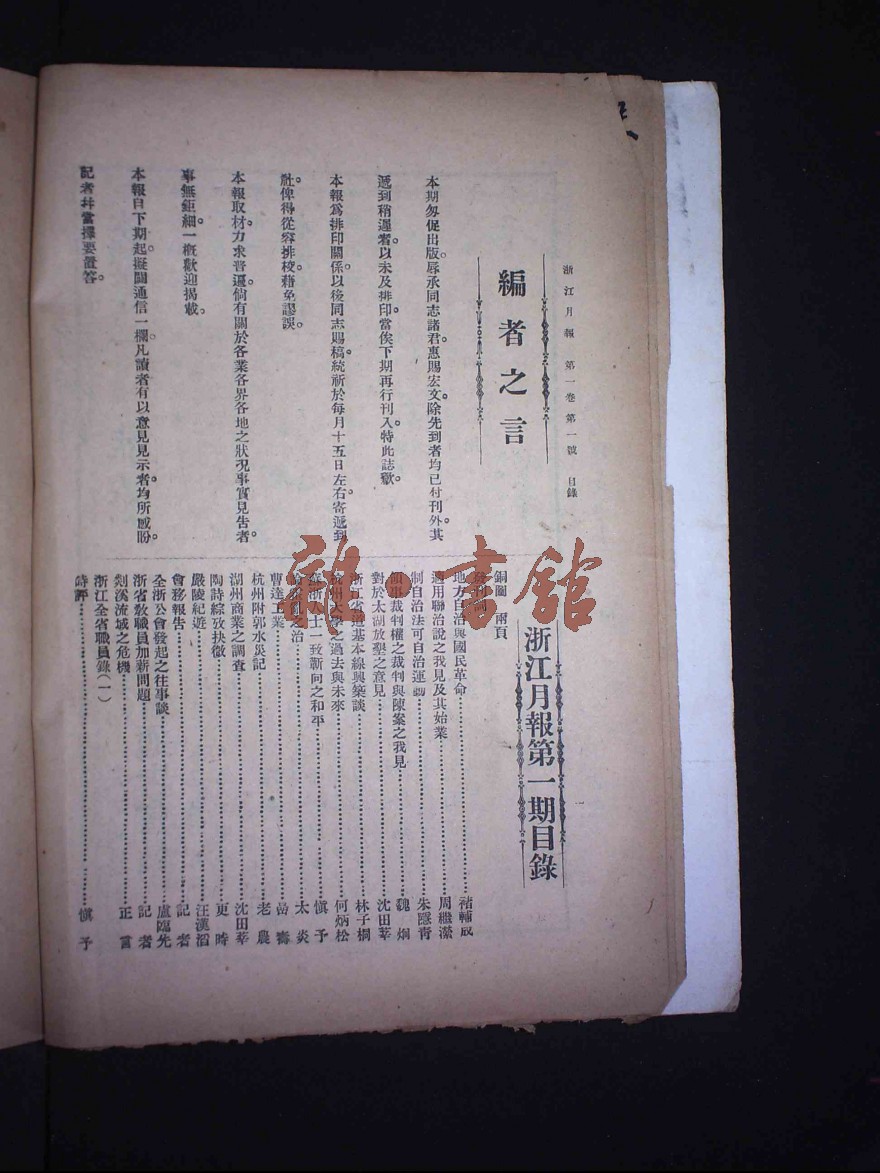 浙江月報 第一卷第一號 目錄
編者之言
本期匆促出版。辱承同志諸君惠賜宏文。除先到者均已付刊外。其
遞到稍遲者。以未及排印。當俟下期再行刊入。特此誌歉。
本報爲排印關係。以後同志賜稿。統祈於每月十五日左右寄遞到
社。俾得從容排校。藉免謬誤。
本報取材。力求普遍。倘有關於各業各界各地之狀況事實見告者。
事無鉅細。一槪歡迎揭載。
本報自下期起。擬闢通信一欄。凡讀者有以意見見示者。均所感盼。
記者幷當擇要置答。
一
浙江月報第一期目錄
銅圖 兩頁
發刊詞
地方自治與國民革命……褚輔成
適用聯治說之我見及其始業……周繼瀠
制自治法可自治運動……朱隱青
領事裁判權之裁判與陳案之我見……魏炯
對於太湖放墾之意見……沈田莘
浙江省道基本線興築談……林子桐
杭州大學之過去與未來……何炳松
蘇浙人士一致蘄向之和平……愼予
亂之治……太炎
曹達工業……岳
杭州附郭水災記……老農
湖州商業之調查……沈田莘
陶詩綜攷抉微……更時
嚴陵紀遊……汪漢滔
會移報告……記者
全浙公會發起之往事談……盧臨先
浙省敎職員加薪問題……記者
剡溪流域之危機……正言
浙江全省職員錄(一)
時評……愼予
雜·書館